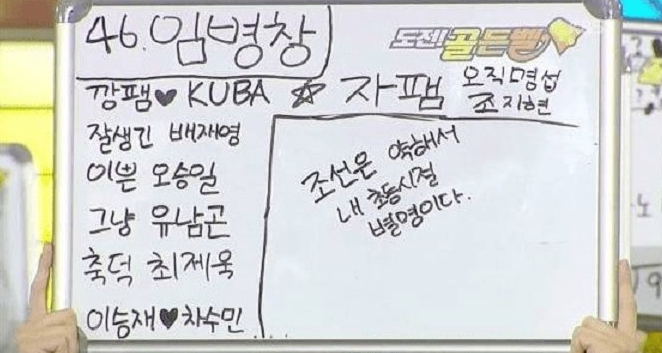 46. 임병창
도전! 골든벨
깡팸♥ KUBA ☆ 자팸 오직명섭
조지현
잘생긴 배재영
이쁜 오승일
그냥 유남곤
축덕 최제욱
이승재♥차수민
조선은 약해서
내 초등시절
별명이다.